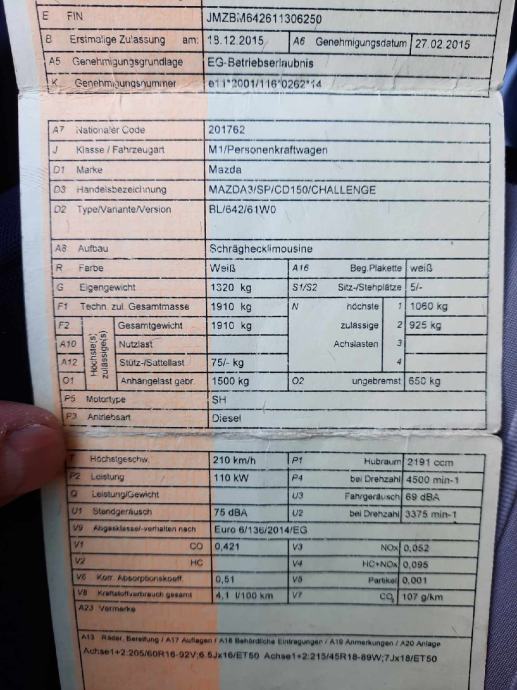 E FIN JMZBM642611306250
B Erstmalige Zulassung am: 18.12.2015 A6 Genehmigungsdatum 27.02.2015
A5 Genehmigungsgrundlage EG-Betriebserlaubnis
K Genehmigungsnummer e11*2001/116*0262*14
A7 Nationaler Code 201762
J Klasse / Fahrzeugart M1/Personenkraftwagen
D1 Marke Mazda
D3 Handelsbezeichnung MAZDA3/SP/CD150/CHALLENGE
D2 Type/Variante/Version BL/642/61W0
A8 Aufbau Schräghecklimousine
R Farbe Weiß A16 Beg.Plakette weiß
G Eigengewicht 1320 kg S1/S2 Sitz-/Stehplätze 5/-
F1 Techn. zul. Gesamtmasse 1910 kg N höchste 1 1060 kg
F2 Höchste(s) zulässige(s) Gesamtgewicht 1910 kg zulässige 2 925 kg
A10 Nutzlast Achslasten 3
A12 Stütz-/Sattellast 75/- kg 4
O1 Anhängelast gebr. 1500 kg O2 ungebremst 650 kg
P5 Motortype SH
P3 Antriebsart Diesel
T Höchstgeschw. 210 km/h P1 Hubraum 2191 ccm
P2 Leistung 110 kW P4 bei Drehzahl 4500 min-1
Q Leistung/Gewicht U3 Fahrgeräusch 69 dBA
U1 Standgeräusch 75 dBA U2 bei Drehzahl 3375 min-1
V9 Abgasklasse/-verhalten nach Euro 6/136/2014/EG
V1 CO 0,421 V3 NOx 0,052
V2 HC V4 HC+NOx 0,095
V6 Korr. Absorptionskoeff. 0,51 V5 Partikel 0,001
V8 Kraftstoffverbrauch gesamt 4,1 l/100 km V7 CO₂ 107 g/km
A23 Vermerke
A13 Räder, Bereifung / A17 Auflagen / A18 Behördliche Eintragungen / A19 Anmerkungen / A20 Anlage
Achse1+2:205/60R16-92V;6.5Jx16/ET50 Achse1+2:215/45R18-89W;7Jx18/ET50